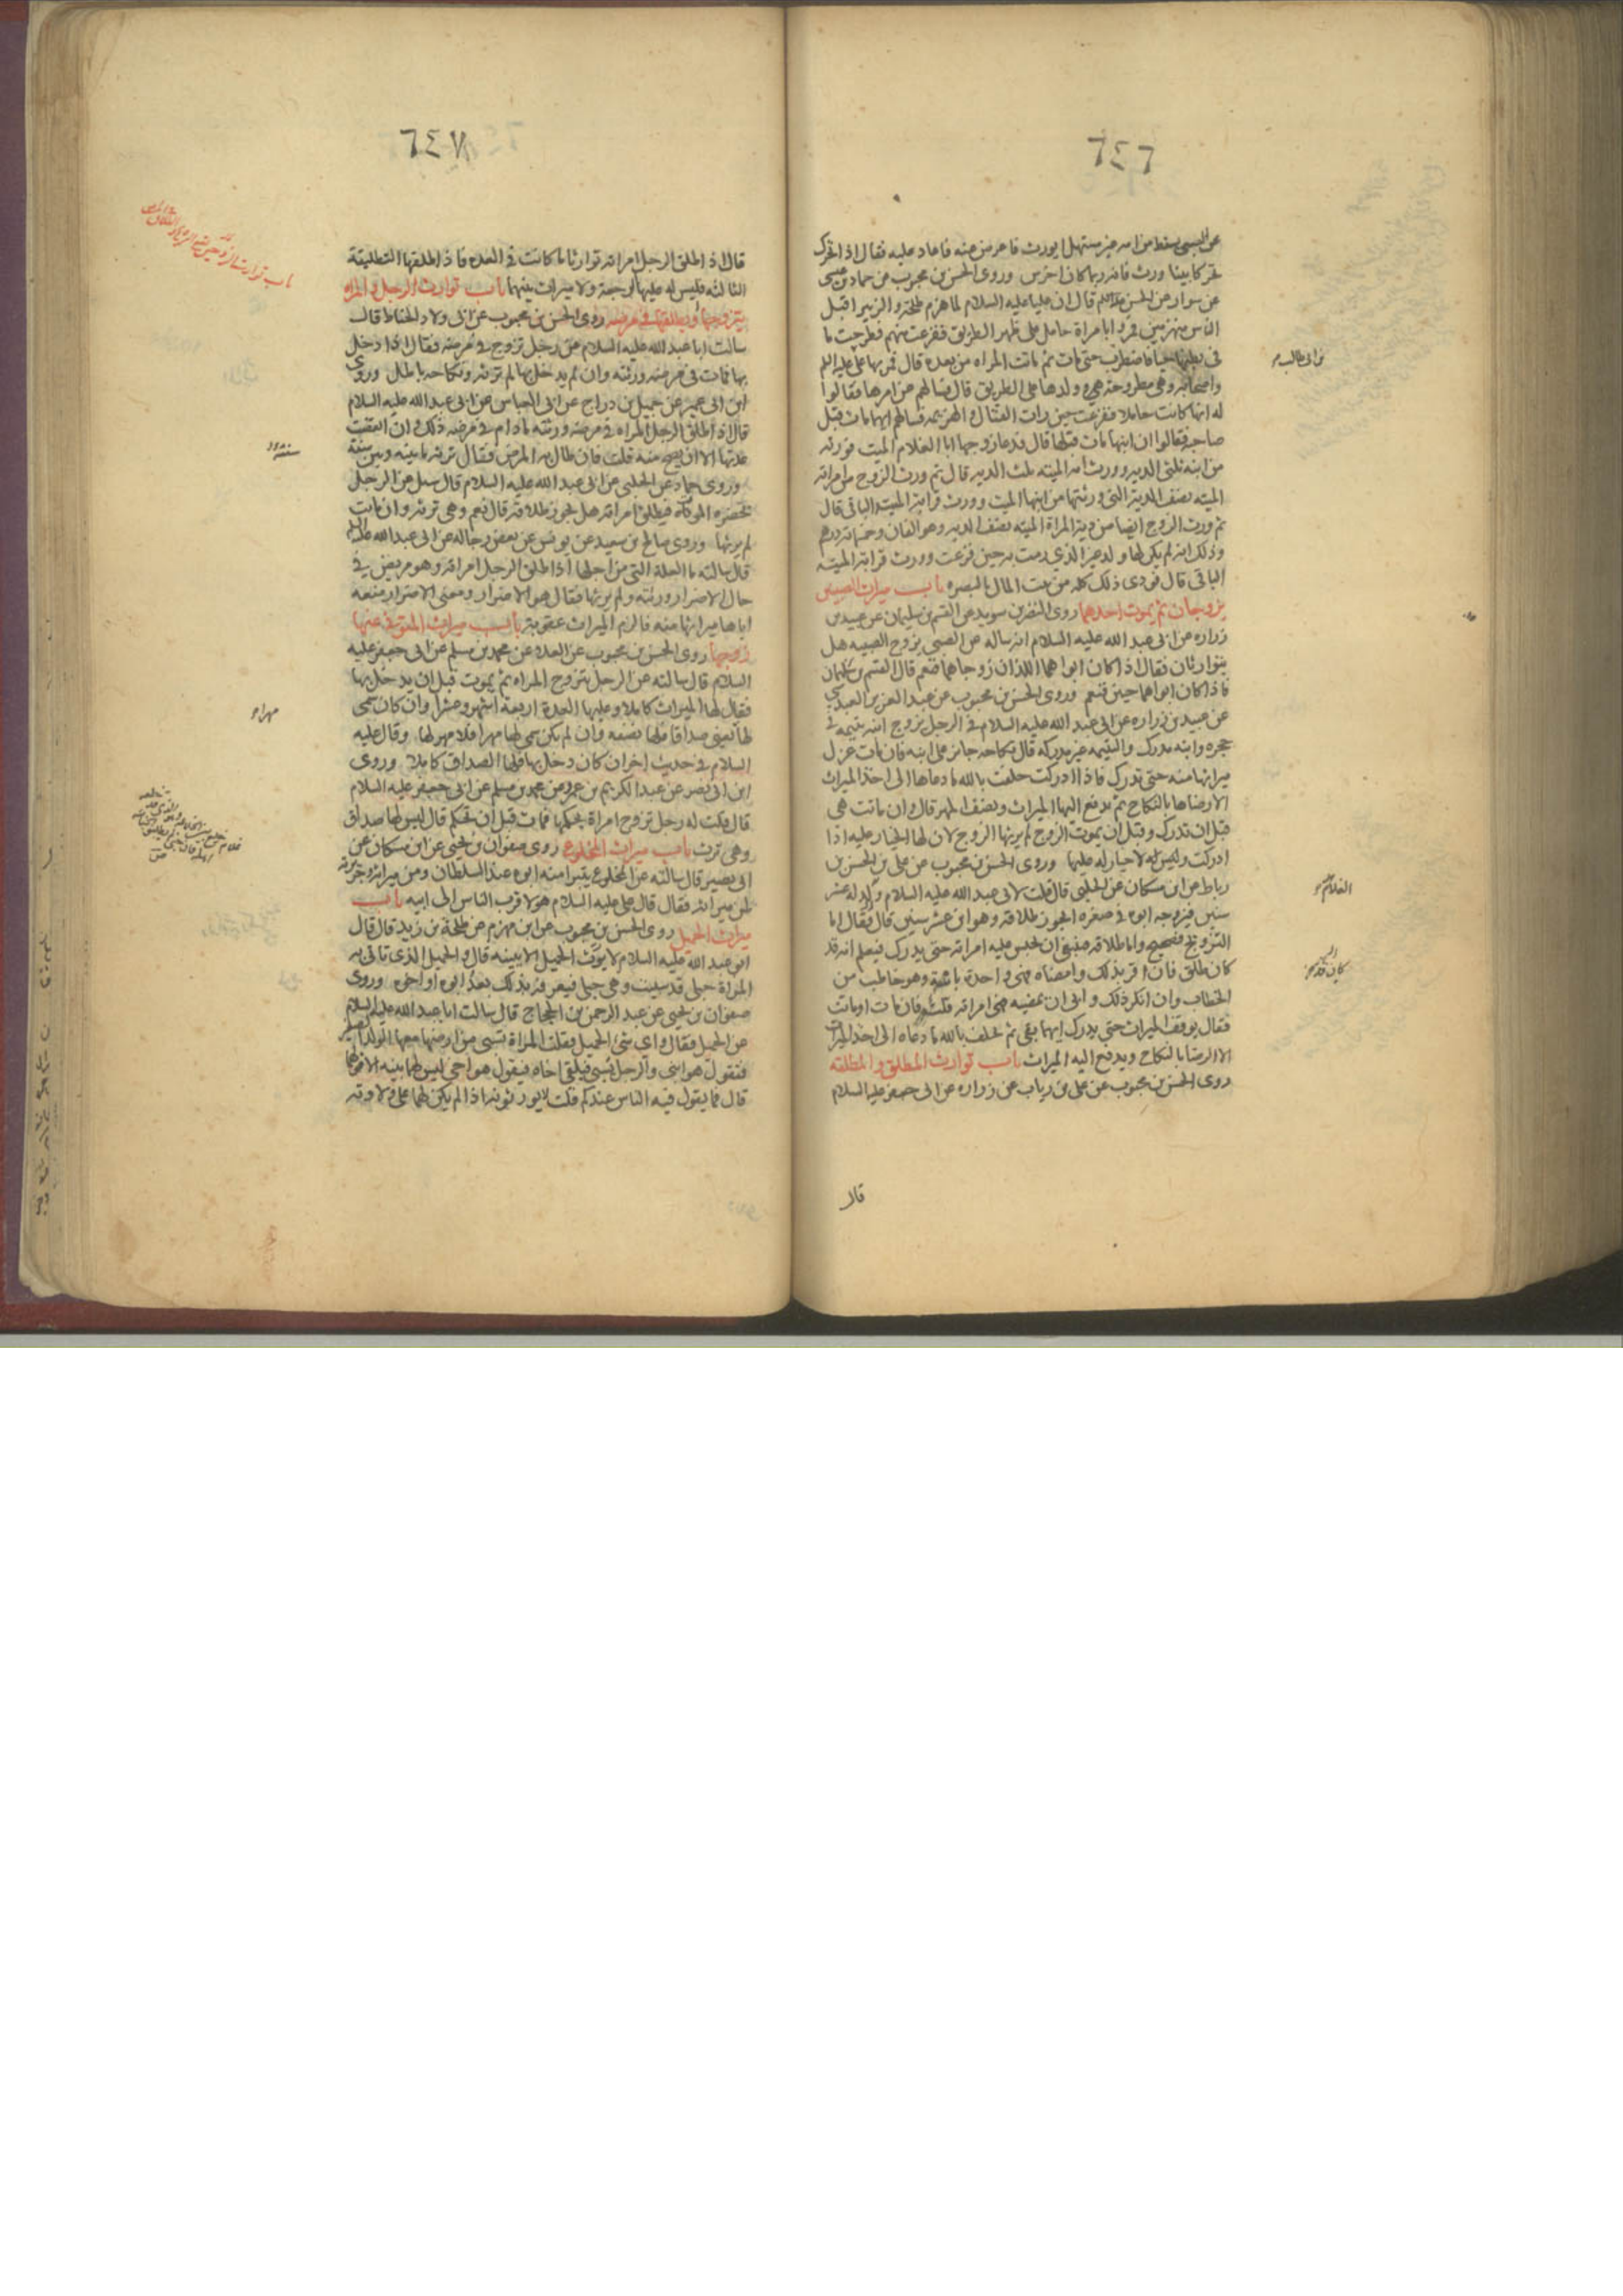 ٦٤٦
عن الصبى يسقط من امه غير مستهل ايورث فاعرض عنه فاعاد عليه فقال اذا تحرك
تحركا بينا ورث فانه ربما كان اخرس وروى الحسن بن محبوب عن حماد بن عيسى
عن سوار عن الحسن قال ان عليا عليه السلام لما هزم طلحة والزبير اقبل
الناس منهزمين فمروا بامراة حامل على ظهر الطريق ففزعت منهم فطرحت ما
فى بطنها حيا فاضطرب حتى مات ثم ماتت المراه من بعده قال فمر بها على عليه السلم
واصحابه وهى مطروحة وولدها على الطريق قال فسالهم عن امرها فقالوا
له انها كانت حاملا ففزعت حين رات القتال والهزيمه فسالهم ايهما مات قبل
صاحبه فقالوا ان ابنها مات قبلها قال فدعا زوجها ابا الغلام الميت فورثه
من ابنه ثلثى الديه وورث امه الميته ثلث الديه قال ثم ورث الزوج من امراته
الميته نصف الدية التى ورثتها من ابنها الميت وورث قرابة الميت الباقى قال
ثم ورث الزوج ايضا من دية المراة الميته نصف الديه وهو الفان وخمسمائة درهم
وذلك انه لم يكن لها ولد غير الذى رمت به حين فزعت وورث قرابة الميته
الباقى قال فودى ذلك كله من بيت المال بالبصره باب ميراث الصبيين
يزوجان ثم يموت احدهما روى النضر بن سويد عن القسم بن سليمان عن عبيد بن
زراره عن ابى عبد الله عليه السلام انه ساله عن الصبى يزوج الصبيه هل
يتوارثان فقال اذا كان ابواهما اللذان زوجاهما فنعم قال القسم بن سليمان
فاذا كان ابواهما حيين فنعم وروى الحسن بن محبوب عن عبد العزيز العبدى
عن عبيد بن زراره عن ابى عبد الله عليه السلام فى الرجل يزوج ابنه يتيمه فى
حجره وابنه مدرك واليتيمه غير مدركه قال نكاحه جائز على ابنه فان مات عزل
ميراثها منه حتى تدرك فاذا ادركت حلفت بالله ما دعاها الى اخذ الميراث
الا رضاها بالنكاح ثم يدفع اليها الميراث ونصف المهر قال وان ماتت هى
قبل ان تدرك وقبل ان يموت الزوج لم يرثها الزوج لان لها الخيار عليه اذا
ادركت وليس له لا خيار له عليها وروى الحسن بن محبوب عن على بن الحسن بن
رباط عن ابن مسكان عن الحلبى قال قلت لابى عبد الله عليه السلام ولد له عشر
سنين فيزوجه ابوه فى صغره ايجوز طلاقه وهو ابن عشر سنين قال فقال اما
التزويج فصحيح واما طلاقه فينبغى ان تحبس عليه امراته حتى يدرك فيعلم انه قد
كان طلق فان اقر بذلك وامضاه فهى واحدة بائنة وهو خاطب من
الخطاب وان انكر ذلك وابى ان يمضيه فهى امراته قلت فان مات او ماتت
فقال يوقف الميراث حتى يدرك ايهما بقى ثم يحلف بالله ما دعاه الى اخذ الميراث
الا الرضا بالنكاح ويدفع اليه الميراث باب توارث المطلق والمطلقه
روى الحسن بن محبوب عن على بن رياب عن زراره عن ابى جعفر عليه السلام
قال
بن ابى طالب
الغلام
كان قد
٦٤٧
قال اذا طلق الرجل امراته توارثا ما كانت فى العده فاذا طلقها التطليقة
الثالثه فليس له عليها الرجعة ولا ميراث بينهما باب توارث الرجل والمراه
يتزوجها ويطلقها فى مرضه روى الحسن بن محبوب عن ابى ولاد الحناط قال
سالت ابا عبد الله عليه السلام عن رجل تزوج فى مرضه فقال اذا دخل
بها فمات فى مرضه ورثته وان لم يدخل بها لم ترثه ونكاحه باطل وروى
ابن ابى عمير عن جميل بن دراج عن ابى العباس عن ابى عبد الله عليه السلام
قال اذا طلق الرجل المراه فى مرضه ورثته ما دام فى مرضه ذلك وان انقضت
عدتها الا ان يصح منه قلت فان طال به المرض فقال ترثه ما بينه وبين سنة
وروى حماد عن الحلبى عن ابى عبد الله عليه السلام قال سئل عن الرجل
تحضره الموت فيطلق امراته هل يجوز طلاقه قال نعم وهى ترثه وان ماتت
لم يرثها وروى صالح بن سعيد عن يونس عن بعض رجاله عن ابى عبد الله عليه السلم
قال سالته ما العلة التى من اجلها اذا طلق الرجل امراته وهو مريض فى
حال الاضرار ورثته ولم يرثها فقال هو الاضرار ومعنى الاضرار منعه
اياها ميراثها منه فالزم الميراث عقوبة باب ميراث المتوفى عنها
زوجها روى الحسن بن محبوب عن العلاء عن محمد بن مسلم عن ابى جعفر عليه
السلام قال سالته عن الرجل يتزوج المراه ثم يموت قبل ان يدخل بها
فقال لها الميراث كاملا وعليها العدة اربعة اشهر وعشرا وان كان سمى
لها يعنى صداقا فلها نصفه وان لم يكن سمى لها مهرا فلا مهر لها وقال عليه
السلام فى حديث اخر ان كان دخل بها فلها الصداق كاملا وروى
ابن ابى نصر عن عبد الكريم بن عمرو عن محمد بن مسلم عن ابى جعفر عليه السلام
قال قلت له رجل تزوج امراة بحكمها فمات قبل ان تحكم قال ليس لها صداق
وهى ترث باب ميراث المخلوع روى صفوان بن يحيى عن ابن مسكان عن
ابى بصير قال سالته عن المخلوع يتبرا منه ابوه عند السلطان ومن ميراثه وجريرته
لمن ميراثه فقال قال على عليه السلام هو لاقرب الناس الى ابيه باب
ميراث الحميل روى الحسن بن محبوب عن ابن مهزم عن طلحة بن زيد قال قال
ابو عبد الله عليه السلام لا يورث الحميل الا ببينه قال والحميل الذى تاتى به
المراة حبلى قد سبيت وهى حبلى فيعرفه بذلك بعد ابوه او اخى وروى
صفوان بن يحيى عن عبد الرحمن بن الحجاج قال سالت ابا عبد الله عليه السلام
عن الحميل فقال واى شئ الحميل فقلت المراة تسبى من ارضها معها الولد الصغير
فتقول هو ابنى والرجل يسبى فيلقى اخاه فيقول هو اخى ليس لهما بينه الا قولهما
قال فما يقول فيه الناس عندكم قلت لا يورثونه اذا لم يكن لهما على ولادته
مهرا